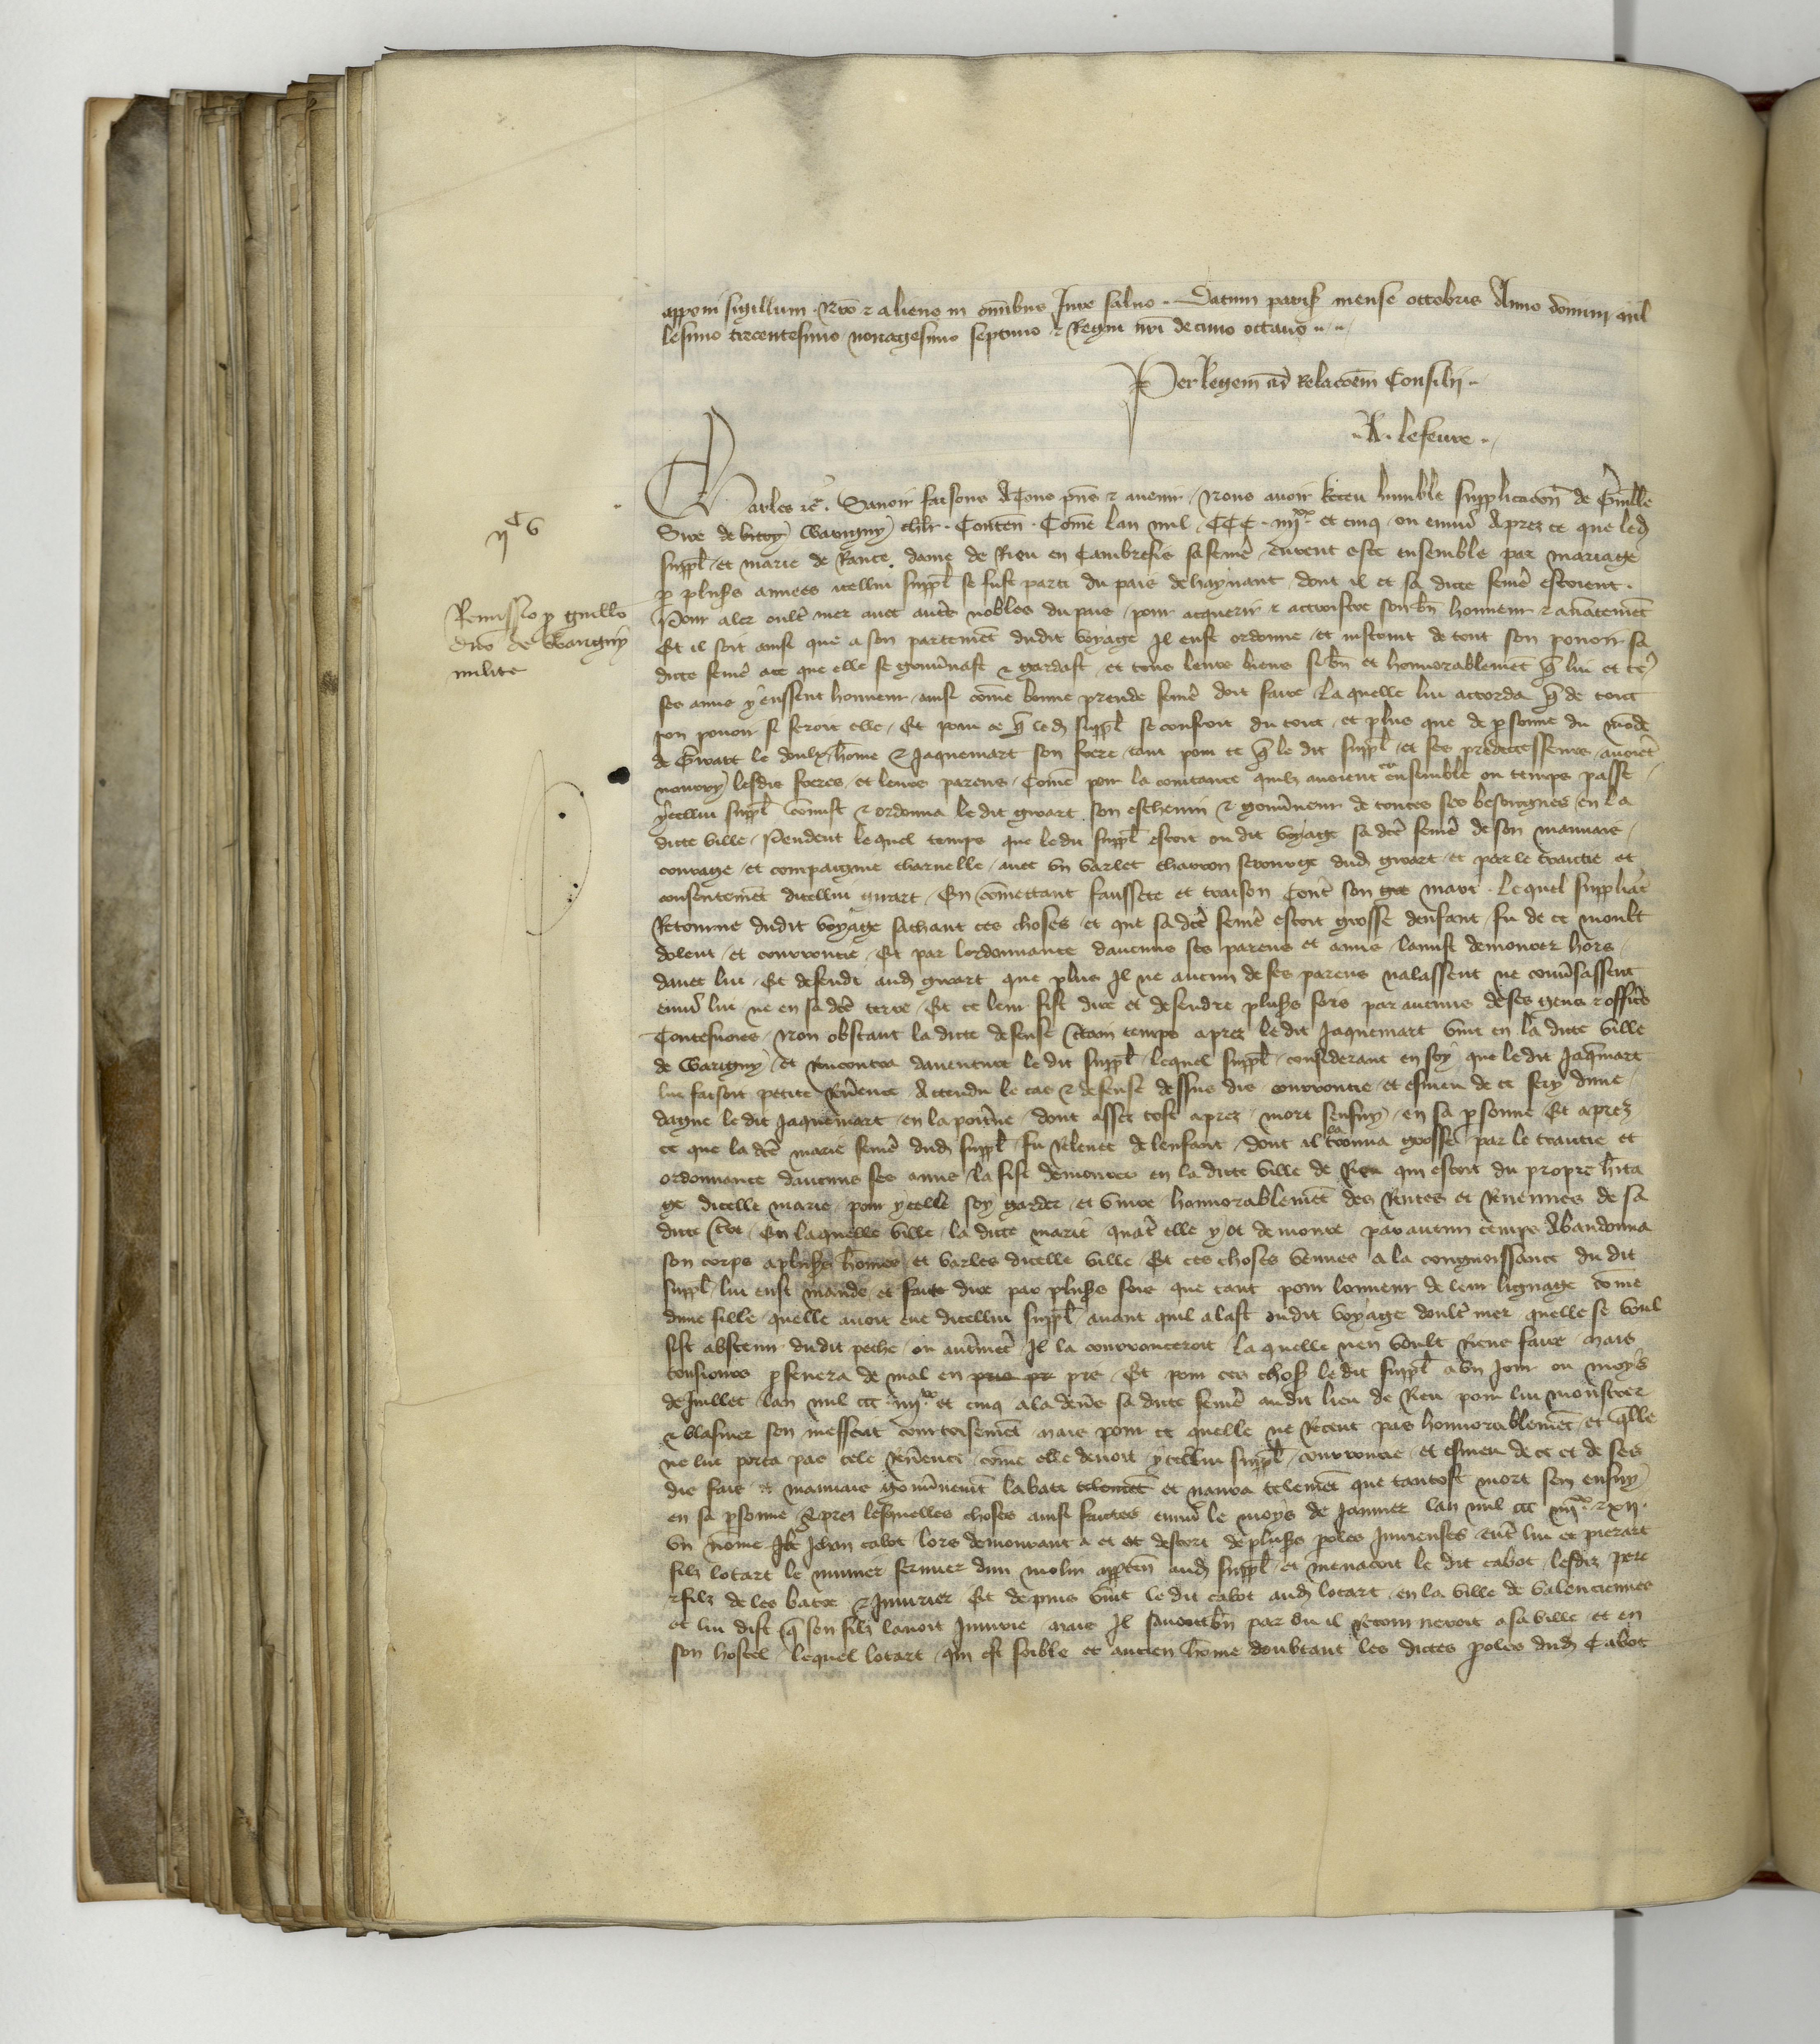 apponi sigillum. Nro et alieno in omnibus Jure salvo. Datum parisius mense octobris Anno domini mil
lesimo trecentesimo nonagesimo septimo et Regni nri decimo octavo
Per Regem ad Relacoem Consilii
A. lefevre
Charles etc. Savoir faisons A Tous pns et avenir Nous avoir Receu humble supplicacion de Guille
Sire de Warigny chlr. Conten. Come lan mil CCC iiijxx et cinq ou environ Aprez ce que led
suppl et marie de Rance dame de Rieu en Cambresis sa feme eurent este ensemble par mariage
p plusrs annees icellui suppl se fust parti du pais de haynaut dont il et sa dicte feme estoient
Pour aler oultre mer avec autres nobles du pais pour acquerir et accroistre son bn honneur et avancement
Et il soit ainsi que a son partement dudit voyage Il eust ordonne et instruit de tout son pouoir sa
dicte feme ace que elle se gouvnast et gardast et tous leurs biens si bn et honnorablement q lui et
ses amis y eussent honneur ainsi come bonne preude feme doit faire laquelle lui accorda q de tout
son pouoir si feroit elle Et pour ce q led suppl se confioit du tout et plus que de psonne du mode
de Gwart le doulz home et Jaquemart son frere tant pour ce q le dit suppl et ses predecesseurs avoiet
nourry lesdis freres et leurs parens Come pour la cointance quilz avoient eu ensemble ou temps passe
ycellui suppl comist et ordonna le dit gwart son eschevin et gouvneur de toutes ses besoingnes en la
dicte ville Pendent lequel temps que ledit suppl estoit ou dit voyage sa dce feme de son mauvais
courage et compaignie charnelle avec un varlet charron serourge dud gwart et par le traictie et
consentement dicellui gwart En comettant faussete et traison Contre son mari lequel suppliat
Retourne dudit voyage sachant ces choses et que sa dce feme estoit grosse denfant fu de ce moult
dolent et courroucie Et par lordonnance daucuns ses parens et amis lamist demourer hors
davec lui Et defendi aud gwart que plus Il ne aucun de ses parens nalassent ne convsassent
envers lui ne en sa dce terre Et ce leur fist dire et defendre plusrs fois par aucuns de ses gens et offics
Toutesvoies Non obstant la dicte defense certain temps aprez ledit Jaquemart vint en la dicte ville
de Warigny et Rencontra daventure le dit suppl lequel suppl considerant en soy que ledit Jaqmart
lui faisoit petite Revence Attendu le cas et defense dessus dis courroucie et esmeu de ce fery dune
dague le dit Jaquemart en la poitrine dont assez tost aprez mort sensuy en sa psonne Et aprez
ce que la dce marie feme dud suppl fu Relevee de lenfant dont il la trouva grosse par le traictie et
ordonnance daucuns ses amis la fist demourer en la dicte ville de Rieu qui estoit du propre herita
ge dicelle marie pour ycelle soy garder et vivre honnorablement des Rentes et Revenues de sa
dicte terre En laquelle ville la dicte marie quant elle y ot demoure par aucun temps Abandonna
son corps a plusrs homes et varles dicelle ville Et ces choses venues a la congnoissance du dit
suppl lui eust mande et faire dire par plusrs fois que tant pour lonneur de leur lignage come
dune fille quelle avoit eue dicellui suppl avant quil alast oudit voyage doultre mer quelle se voul
sist abstenir dudit peche ou autrement Il la courrouceroit laquelle nen voult Riens faire mais
tousjours psevera de mal en pre pre Et pour ces choses ledit suppl a un Jour ou moys
de Juillet lan mil ccc iiijxx et cinq ala devers sa dicte feme audit lieu de Rieu pour lui moustrer
et blasmer son meffait courtoisement mais pour ce quelle ne Receut pas honnorablement et qlle
ne lui porta pas tele Revence come elle devoit ycellui suppl courroucie et esmeu de ce et de ses
dis fais et mauvais gouvnement la bati et navra telement que tantost mort sen ensuy
en sa psonne Aprez lesquelles choses ainsi faictes environ le moys de Janvier lan mil ccc iiijxx et xij
un nome Jehan cabot lors demourant a et ot descort de plusrs poles Injurieuses entre lui et pierart
filz lotart le munier fermier dun molin apptenant aud suppl et menacoit le dit cabot lesdiz pere
et filz de les batre et Injurier Et depuis vint le dit cabot aud lotart en la ville de valenciennes
et lui dist q son filz lavoit Injurie mais Il savoit bn par ou il Retourneroit a sa ville et en
son hostel lequel lotart qui est foible et ancien home doubtant les dictes poles dud Cabot
ijC6
Remissio p guillo
dno de Warigny
milite